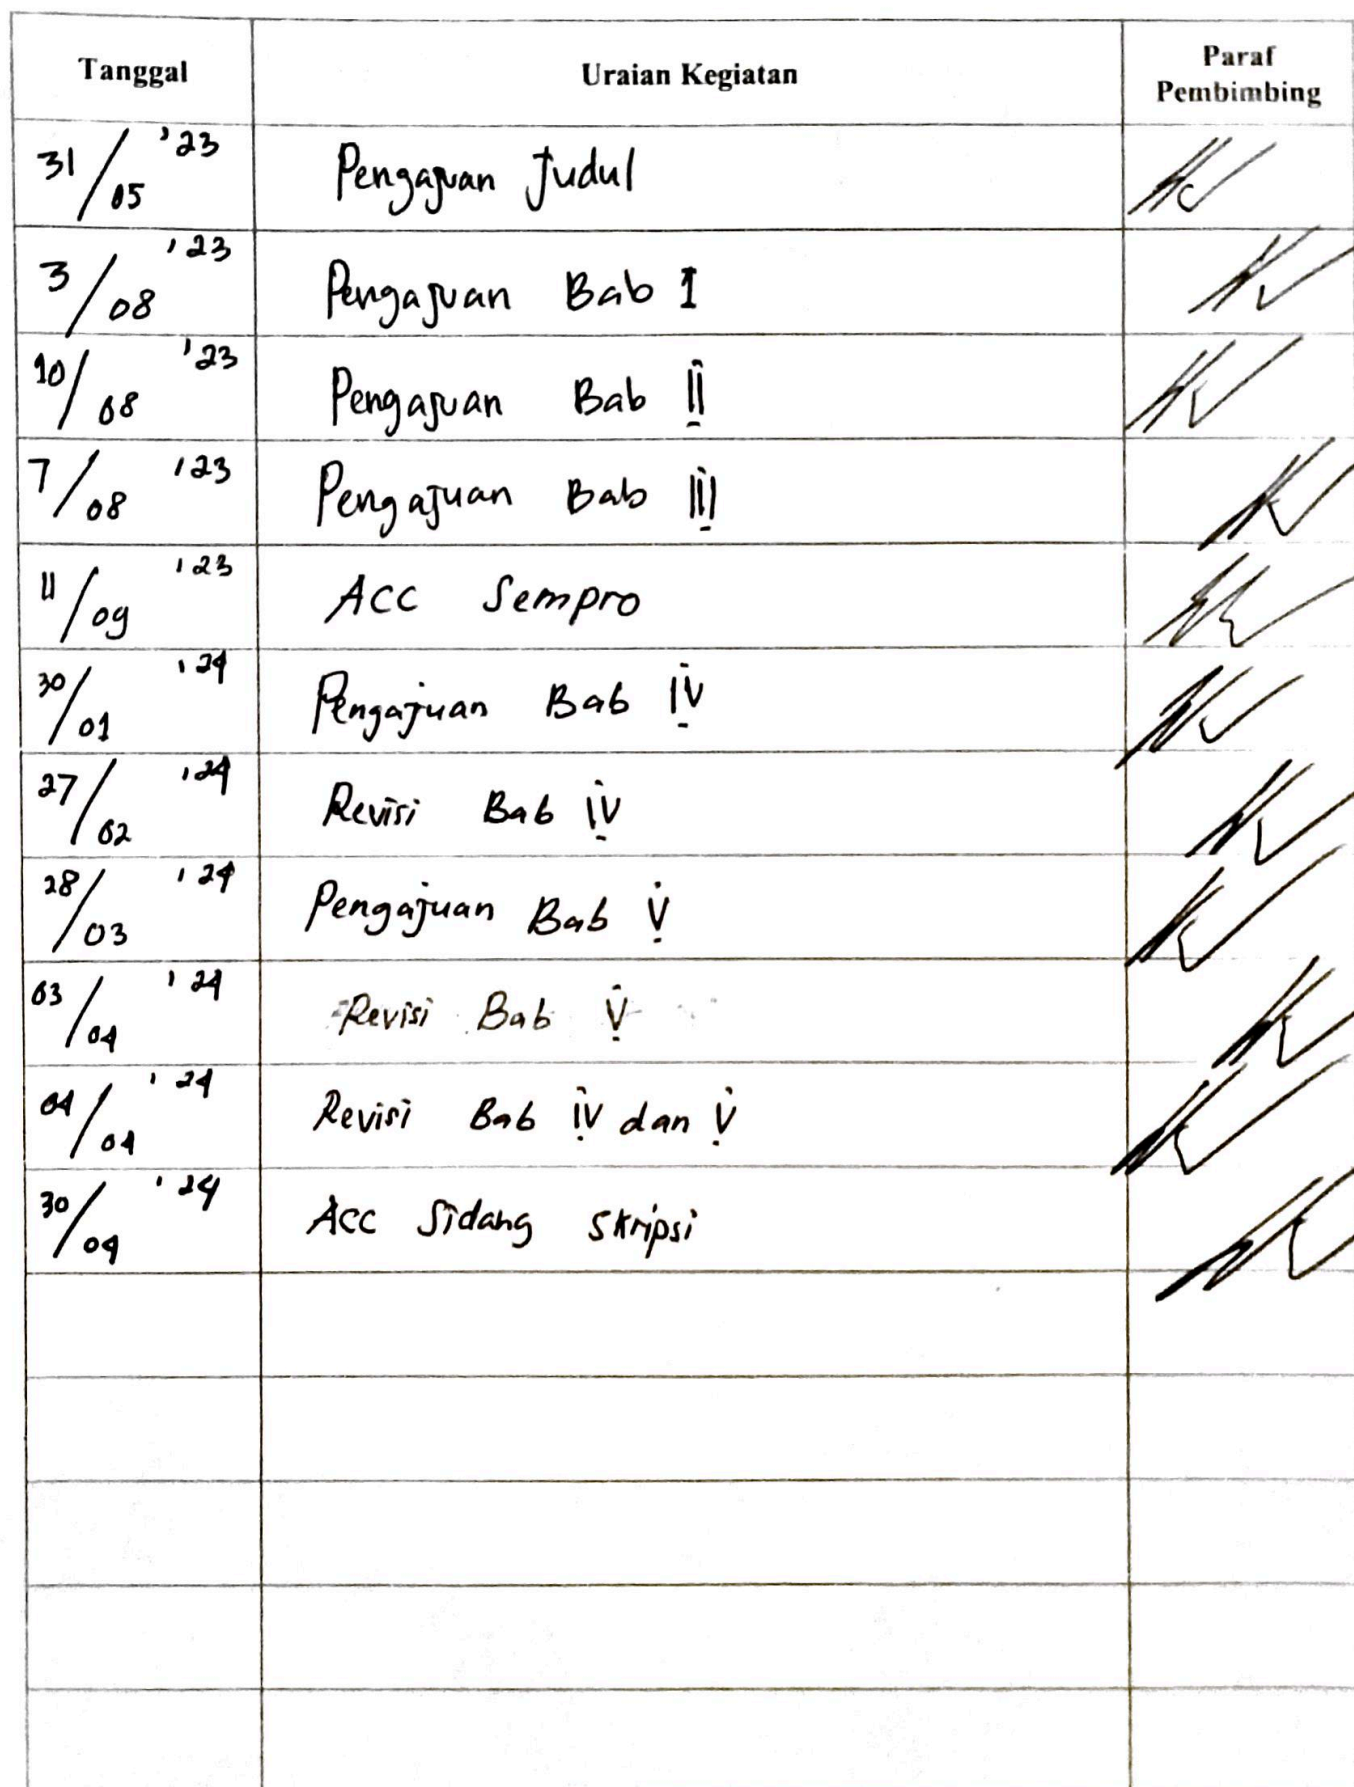 Tanggal Uraian Kegiatan Paraf Pembimbing
31/05 '23 Pengajuan Judul
3/08 '23 Pengajuan Bab I
10/08 '23 Pengajuan Bab II
7/08 '23 Pengajuan Bab III
11/09 '23 ACC Sempro
30/01 '24 Pengajuan Bab IV
27/02 '24 Revisi Bab IV
28/03 '24 Pengajuan Bab V
03/04 '24 Revisi Bab V
04/04 '24 Revisi Bab IV dan V
30/04 '24 ACC Sidang Skripsi